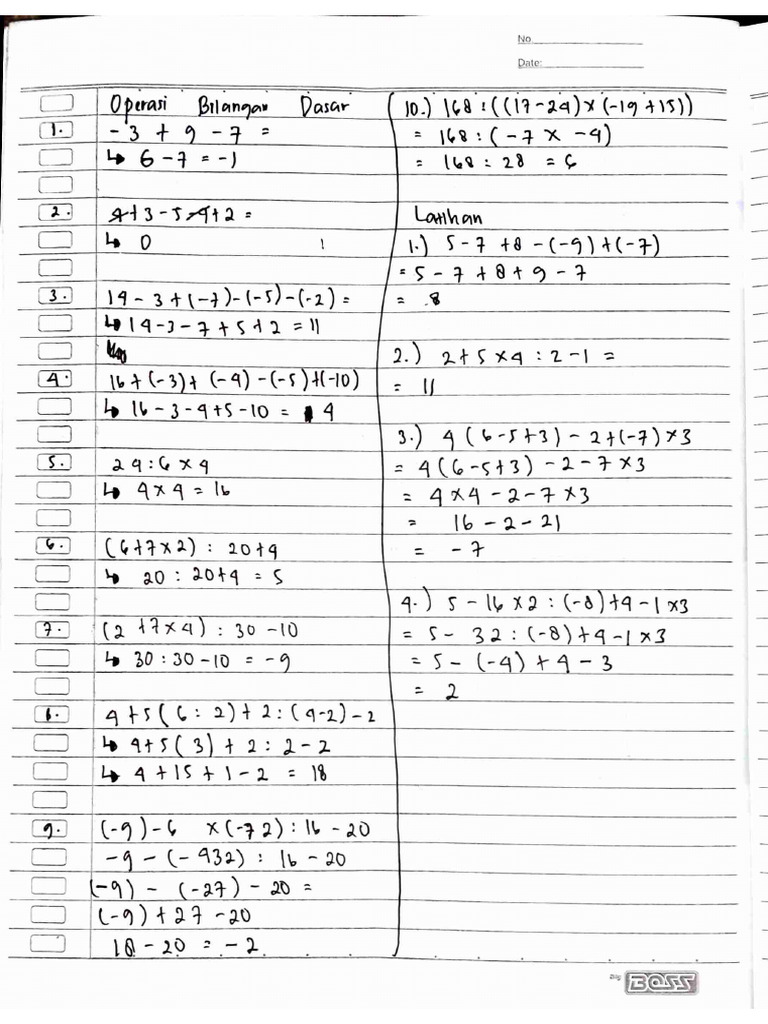 No.
Date:
Operasi Bilangan Dasar
1. -3 + 9 - 7 =
↳ 6 - 7 = -1
2. 4+3-5-4+2 =
↳ 0
3. 14 - 3 + (-7) - (-5) - (-2) =
↳ 14-3-7+5+2 = 11
4. 16+(-3)+(-4)-(-5)+(-10)
↳ 16-3-4+5-10 = 4
5. 24:6×4
↳ 4×4 = 16
6. (6+7×2) : 20+4
↳ 20 : 20+4 = 5
7. (2+7×4) : 30-10
↳ 30:30-10 = -9
8. 4+5(6:2)+2:(4-2)-2
↳ 4+5(3)+2:2-2
↳ 4+15+1-2 = 18
9. (-9)-6 ×(-72):16-20
-9-(-432) : 16-20
(-9) - (-27) - 20 =
(-9)+27-20
18-20 = -2
10.) 168:((17-24)×(-19+15))
= 168:(-7 × -4)
= 168 : 28 = 6
Latihan
1.) 5-7+8-(-9)+(-7)
= 5-7+8+9-7
= 8
2.) 2+5×4:2-1 =
= 11
3.) 4(6-5+3)-2+(-7)×3
= 4(6-5+3)-2-7×3
= 4×4-2-7×3
= 16-2-21
= -7
4.) 5-16×2:(-8)+4-1×3
= 5-32:(-8)+4-1×3
= 5-(-4)+4-3
= 2
BOSS